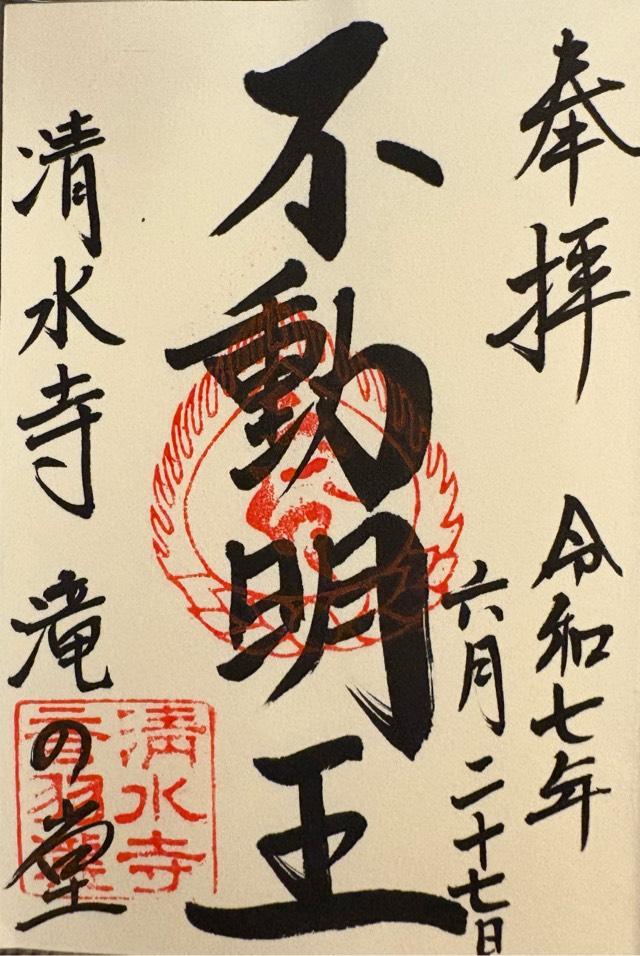 奉拝
令和七年
六月二十七日
不動明王
清水寺 滝の堂
清水寺
音羽滝